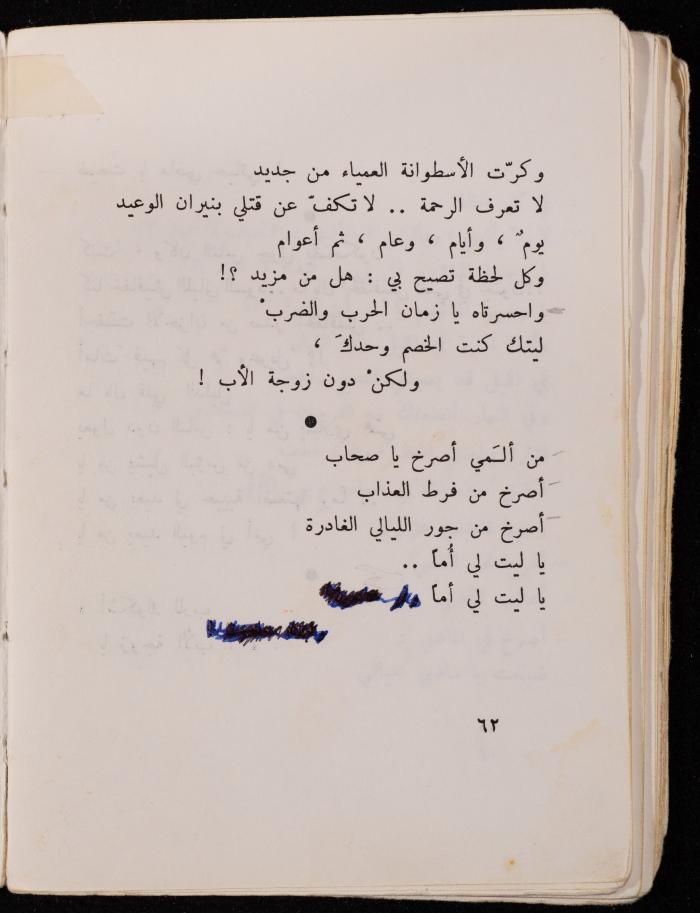 وكرّت الأسطوانة العمياء من جديد
لا تعرف الرحمة .. لا تكفّ عن قتلي بنيران الوعيد
يومٌ ، وأيام ، وعام ، ثم أعوام
وكل لحظة تصيح بي : هل من مزيد ؟!
واحسرتاه يا زمان الحرب والضربْ
ليتك كنت الخصم وحدكَ ،
ولكنْ دون زوجة الأب !
من ألَمي أصرخ يا صحاب
أصرخ من فرط العذاب
أصرخ من جور الليالي الغادرة
يا ليت لي أُماً ..
يا ليت لي أماً
٦٢